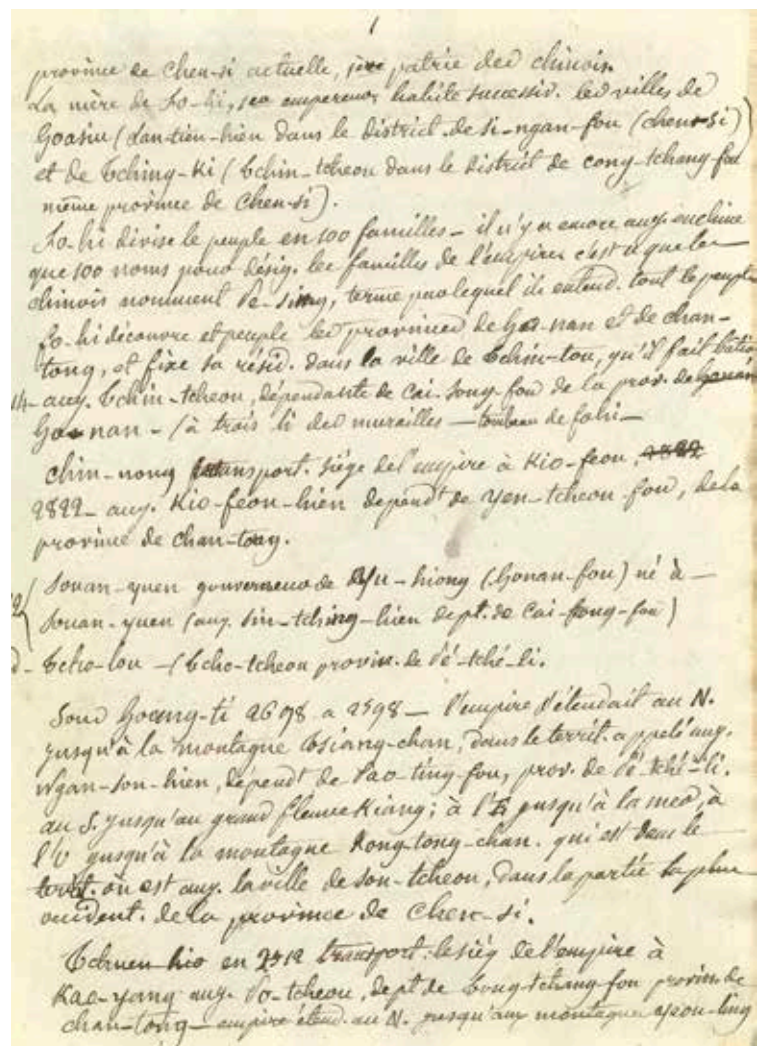 1
province de Chen-si actuelle, 1ère patrie des chinois.
La mère de Fo-hi, 1er empereur, habite successiv. les villes de
Goasiu (Lan-tien-hien dans le district de Si-ngan-fou (Chen-si))
et de Tching-Ki (Tchin-tcheou dans le district de Cong-tchang-fou
même province de Chen-si).
Fo-hi divise le peuple en 100 familles - il n'y a encore auj. en chine
que 100 noms pour désig. les familles de l'empire, c'est que les
chinois nomment Pe-sing, terme par lequel ils entend. tout le peuple
Fo-hi découvre et peuple les provinces de Ho-nan et de Chan-
tong, et fixe sa résid. dans la ville de Tchin-tou, qu'il fait bâtir
auj. Tchin-tcheou, dépendante de Cai-fong-fou de la prov. de Honan
Ho-nan - (à trois li des murailles — tombeau de fohi —
Chin-nong transport. siège de l'empire à Kio-feou, 2822
2822 - auj. Kio-feou-hien depend.t de Yen-tcheou-fou, de la
province de Chan-tong.
Souan-yuen gouverneur de Yu-hiong (Honan-fou) né à —
Souan-yuen (auj. Sin-tching-hien dept. de Cai-fong-fou)
Tcho-lou - (Tcho-tcheou provin. de Pé-tché-li.
Sous Hoang-ti 2698 a 2598 — l'empire s'étendait au N.
jusqu'à la montagne Tsiang-chan, dans le territ. appelé auj.
Ngan-sou-hien, dépend.t de Pao-ting-fou, prov. de Pé-tché-li.
au S. jusqu'au grand fleuve Kiang; à l'E jusqu'à la mer, à
l'O jusqu'à la montagne Kong-tong-chan. qui est dans le
territ. où est auj. la ville de Sou-tcheou, dans la partie la plus
occident. de la province de Chen-si.
Tchuen-hio en 2512 transport. le sièg. de l'empire à
Kao-yang auj. Po-tcheou, dept de Tong-tchang-fou provin. de
Chan-tong — empire étend. au N. jusqu'aux montagnes Yeou-ling